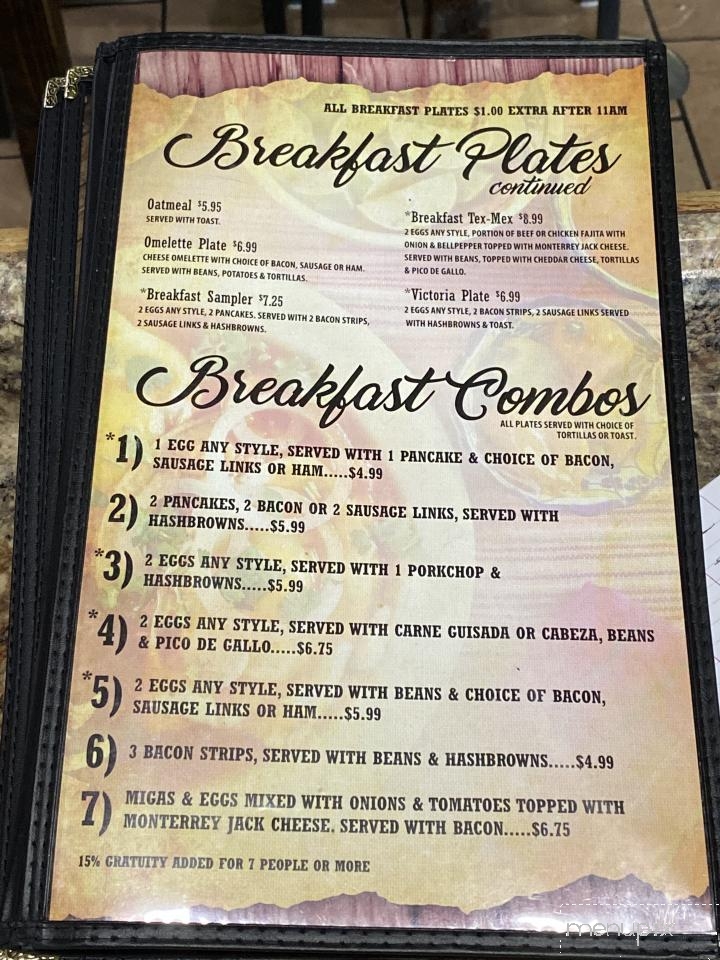 ALL BREAKFAST PLATES $1.00 EXTRA AFTER 11AM
Breakfast Plates
continued
Oatmeal $5.95
SERVED WITH TOAST.
Omelette Plate $6.99
CHEESE OMELETTE WITH CHOICE OF BACON, SAUSAGE OR HAM.
SERVED WITH BEANS, POTATOES & TORTILLAS.
*Breakfast Sampler $7.25
2 EGGS ANY STYLE, 2 PANCAKES. SERVED WITH 2 BACON STRIPS,
2 SAUSAGE LINKS & HASHBROWNS.
*Breakfast Tex-Mex $8.99
2 EGGS ANY STYLE, PORTION OF BEEF OR CHICKEN FAJITA WITH
ONION & BELLPEPPER TOPPED WITH MONTERREY JACK CHEESE.
SERVED WITH BEANS, TOPPED WITH CHEDDAR CHEESE, TORTILLAS
& PICO DE GALLO.
*Victoria Plate $6.99
2 EGGS ANY STYLE, 2 BACON STRIPS, 2 SAUSAGE LINKS SERVED
WITH HASHBROWNS & TOAST.
Breakfast Combos
ALL PLATES SERVED WITH CHOICE OF
TORTILLAS OR TOAST.
*1) 1 EGG ANY STYLE, SERVED WITH 1 PANCAKE & CHOICE OF BACON,
SAUSAGE LINKS OR HAM.....$4.99
2) 2 PANCAKES, 2 BACON OR 2 SAUSAGE LINKS, SERVED WITH
HASHBROWNS.....$5.99
*3) 2 EGGS ANY STYLE, SERVED WITH 1 PORKCHOP &
HASHBROWNS.....$5.99
*4) 2 EGGS ANY STYLE, SERVED WITH CARNE GUISADA OR CABEZA, BEANS
& PICO DE GALLO.....$6.75
*5) 2 EGGS ANY STYLE, SERVED WITH BEANS & CHOICE OF BACON,
SAUSAGE LINKS OR HAM.....$5.99
6) 3 BACON STRIPS, SERVED WITH BEANS & HASHBROWNS.....$4.99
7) MIGAS & EGGS MIXED WITH ONIONS & TOMATOES TOPPED WITH
MONTERREY JACK CHEESE. SERVED WITH BACON.....$6.75
15% GRATUITY ADDED FOR 7 PEOPLE OR MORE